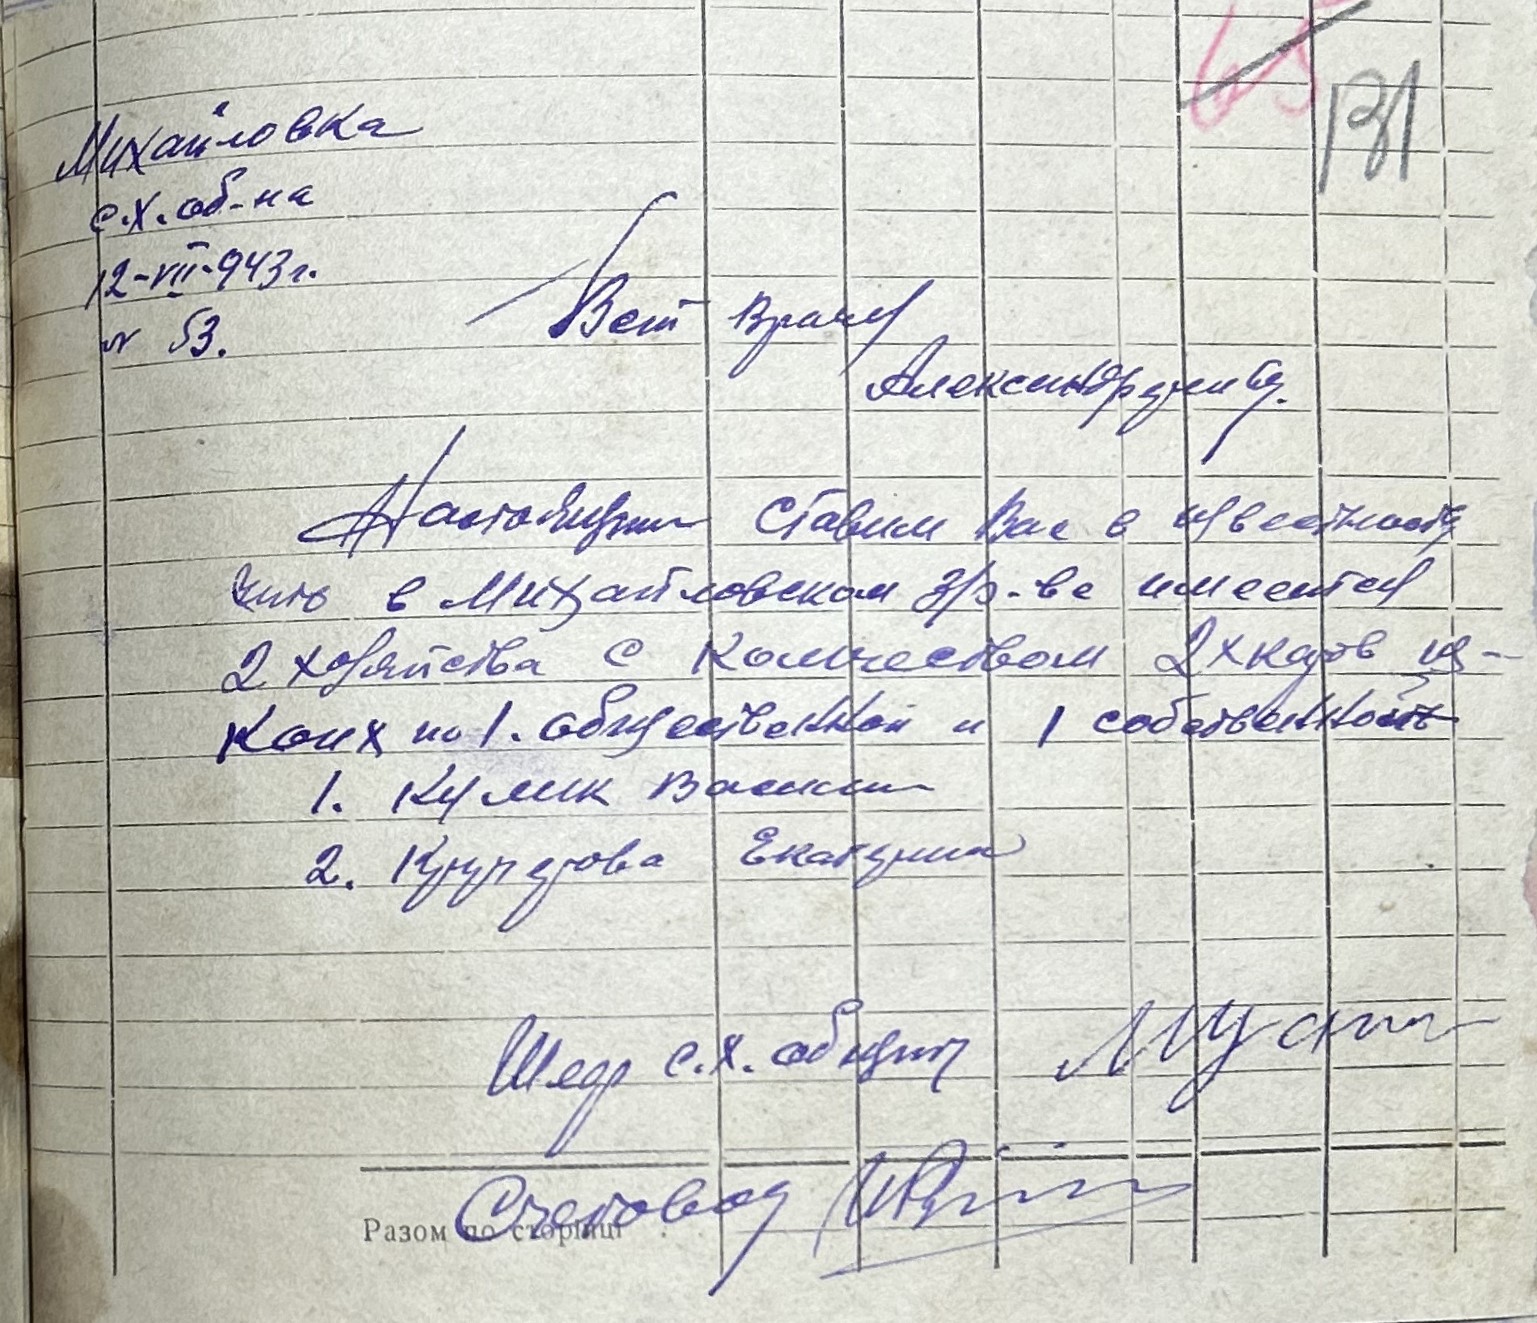 65
131
Михайловка
с.х. об-на
12-VII-943 г.
№ 53.
Вет врачу
Александруниту.
Настоящим ставим Вас в известность
что в Михайловском з/о-ве имеется
2 хозяйства с количеством 2х коров из-
коих по 1. общественной и 1 собственность
1. Кулик Василий
2. Екатерина
с.х. общины
Счетовод
Разом по сторінці